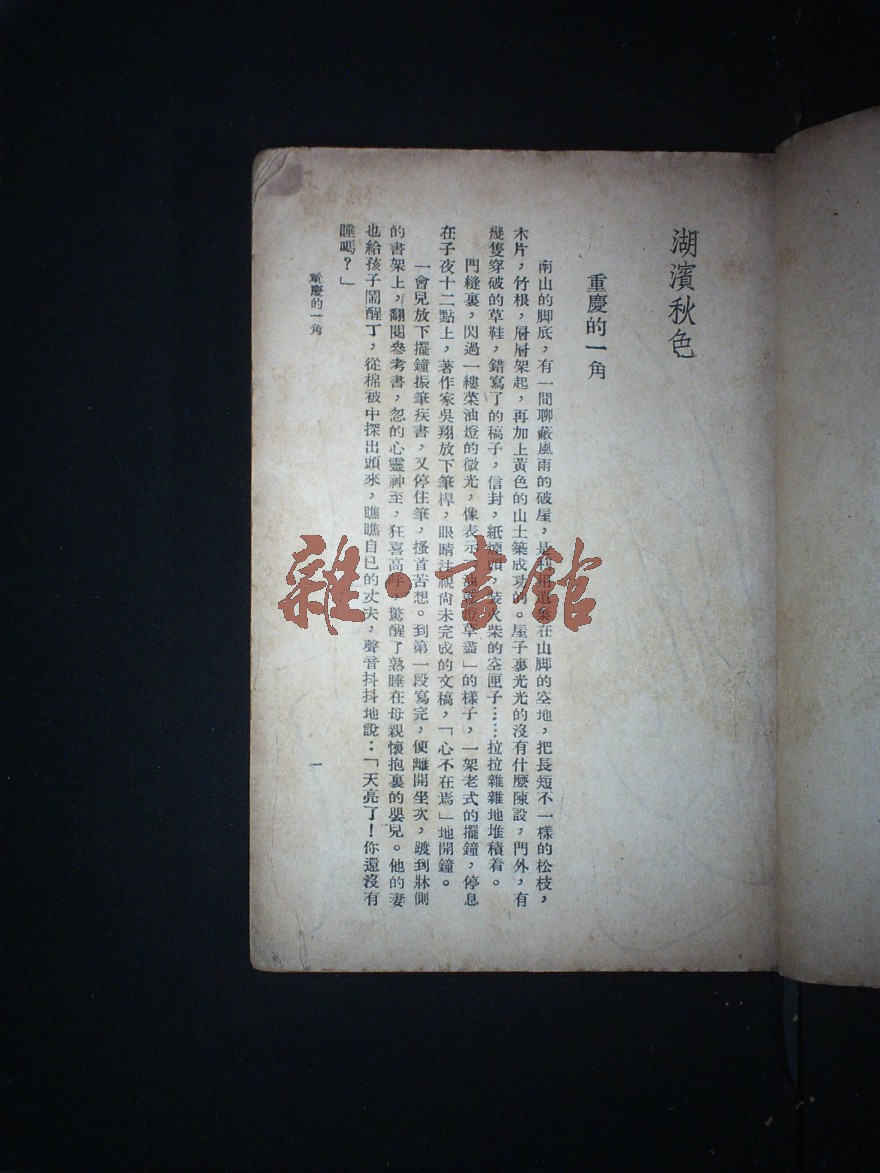 湖濱秋色
重慶的一角
南山的脚底，有一間聊蔽風雨的破屋，是利用這集在山脚的空地，把長短不一樣的松枝，
木片，竹根，層層架起，再加上黃色的山土築成功的。屋子裏光光的沒有什麼陳設，門外，有
幾隻穿破的草鞋，錯寫了的稿子，信封，紙煙頭，裝火柴的空匣子……拉拉雜雜地堆積着。
門縫裏，閃過一縷菜油燈的微光，像表示草盡」的樣子，一架老式的擺鐘，停息
在子夜十二點上，著作家吳翔放下筆桿，眼睛注視尚未完成的文稿，「心不在焉」地開鐘。
一會兒放下擺鐘振筆疾書，又停住筆，搔首苦想。到第一段寫完，便離開坐次，踱到牀側
的書架上，翻閱參考書，忽的心靈神至，狂喜高呼，驚醒了熟睡在母親懷抱裏的嬰兒。他的妻
也給孩子鬧醒了，從棉被中探出頭來，瞧瞧自己的丈夫，聲音抖抖地說：「天亮了！你還沒有
睡嗎？」
重慶的一角
一
雜·書館